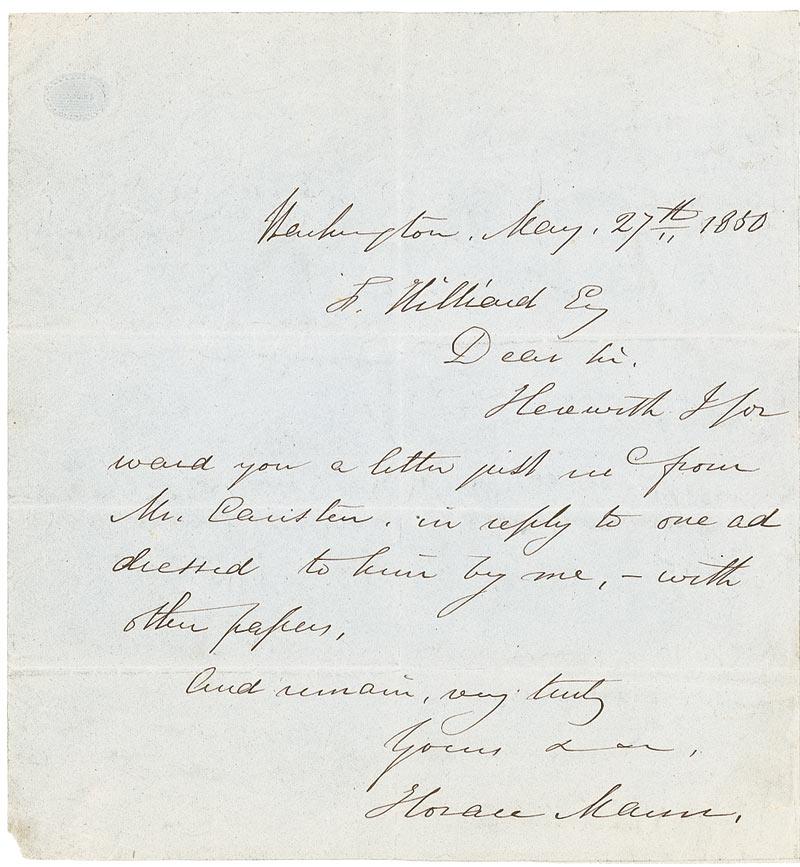 Washington, May, 27th 1850
F. Hilliard Esq
Dear Sir.
Herewith I for
ward you a letter just recd from
Mr. in reply to one ad
dressed to him by me, – with
other papers,
And remain, very truly
Yours &c &c,
Horace Mann,